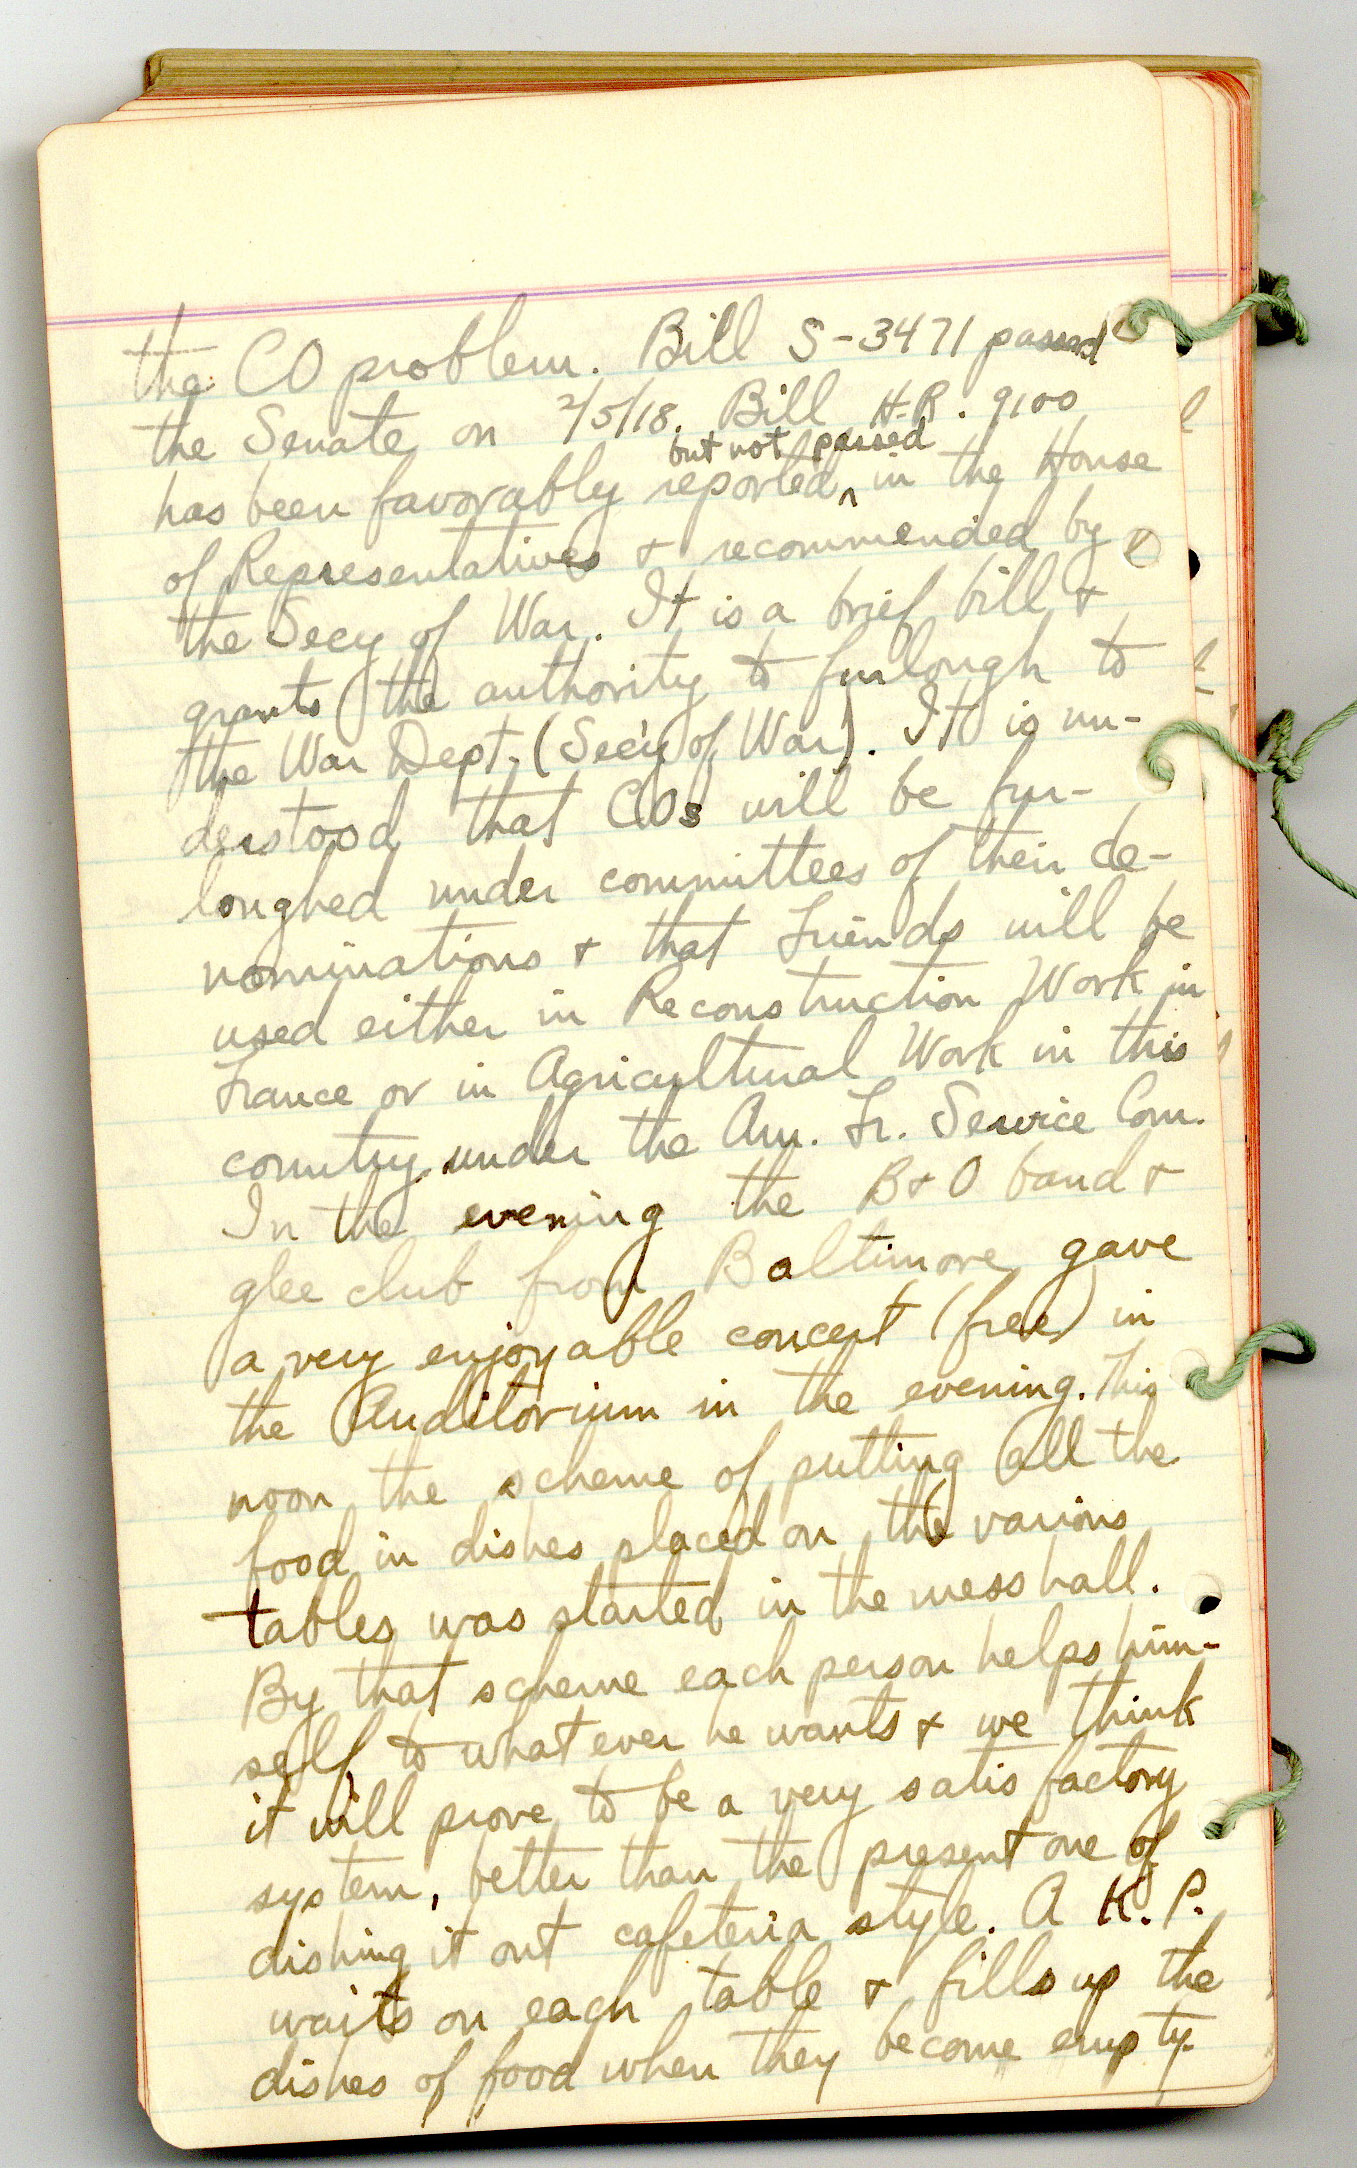 the CO problem. Bill S-3471 passed
the Senate on 2/5/18. Bill H.R. 9100
but not passed
has been favorably reported ^ in the House
of Representatives & recommended by
the Secy of War. It is a brief bill &
grants the authority to furlough to
the War Dept. (Sec'y of War). It is un-
derstood that COs will be fur-
loughed under committees of their de-
nominations & that Friends will be
used either in Reconstruction Work in
France or in Agricultural Work in this
country under the Am. Fr. Service Com.
In the evening the B & O band &
glee club from Baltimore gave
a very enjoyable concert (free) in
the Auditorium in the evening. This
noon the scheme of putting all the
food in dishes placed on the various
tables was started in the mess hall.
By that scheme each person helps him-
self to what ever he wants & we think
it will prove to be a very satisfactory
system, better than the present one of
dishing it out cafeteria style. A K.P.
waits on each table & fills up the
dishes of food when they become empty.